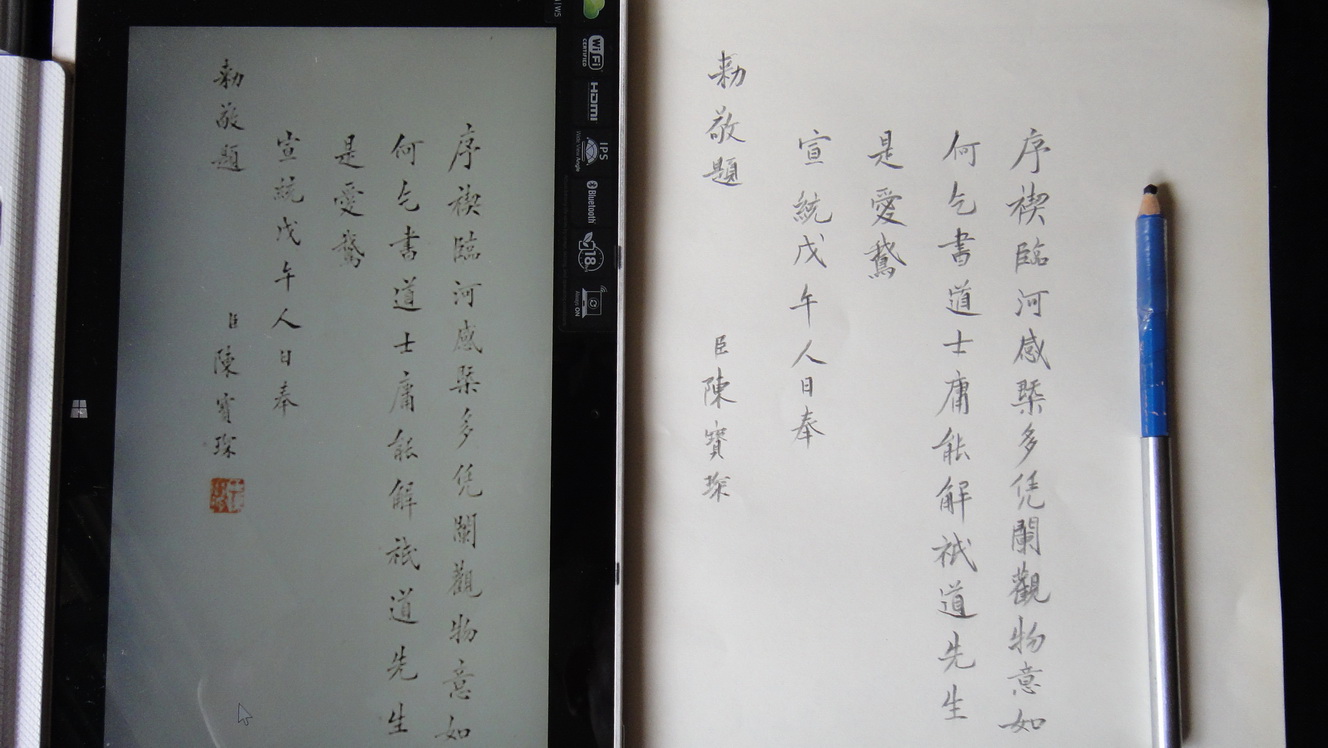 序禊臨河感槩多凭闌觀物意如
何乞書道士庸能解祇道先生
是愛鵞
宣統戊午人日奉
勅敬題
臣陳寶琛
WiFi
CERTIFIED
HDMI
IPS
Bluetooth
18
Always ON
序禊臨河感槩多凭闌觀物意如
何乞書道士庸能解祇道先生
是愛鵞
宣統戊午人日奉
勅敬題
臣陳寶琛